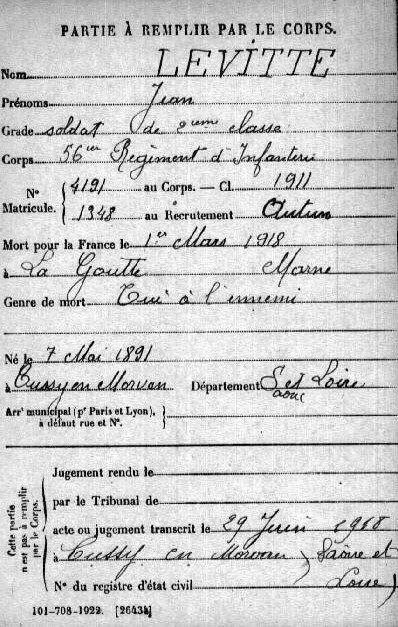 PARTIE À REMPLIR PAR LE CORPS.
Nom LEVITTE
Prénoms Jean
Grade soldat de 2eme classe
Corps 56eme Régiment d'Infanterie
N° Matricule. { 4191 au Corps. — Cl. 1911
1348 au Recrutement Autun
Mort pour la France le 1er Mars 1918
à La Goutte Marne
Genre de mort Tué à l'ennemi
Né le 7 Mai 1891
à Cussy en Morvan Département S et Loire
Arrt municipal (pr Paris et Lyon), à défaut rue et N°. }
Cette partie n'est pas à remplir par le Corps. {
Jugement rendu le
par le Tribunal de
acte ou jugement transcrit le 29 Juin 1918
à Cussy en Morvan (Saône et
N° du registre d'état civil Loire)
101-708-1922. [26434]